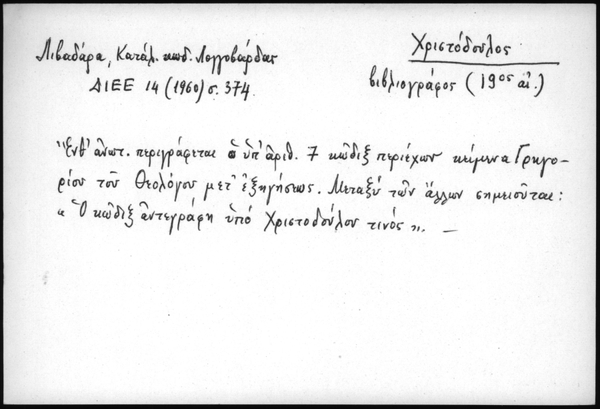 Λιβαδάρα, Κατάλ. κωδ. Λογγοβάρδας
ΔΙΕΕ 14 (1960) σ. 374.
Χριστόδουλος
βιβλιογράφος (19ος αἰ.)
Ἔνθ' ἀνωτ. περιγράφεται ὁ ὑπ' ἀριθ. 7 κῶδιξ περιέχων κείμενα Γρηγο-
ρίου τοῦ Θεολόγου μετ' ἐξηγήσεως. Μεταξύ τῶν ἄλλων σημειοῦται:
« Ὁ κῶδιξ ἀντεγράφη ὑπό Χριστοδούλου τινός ». —